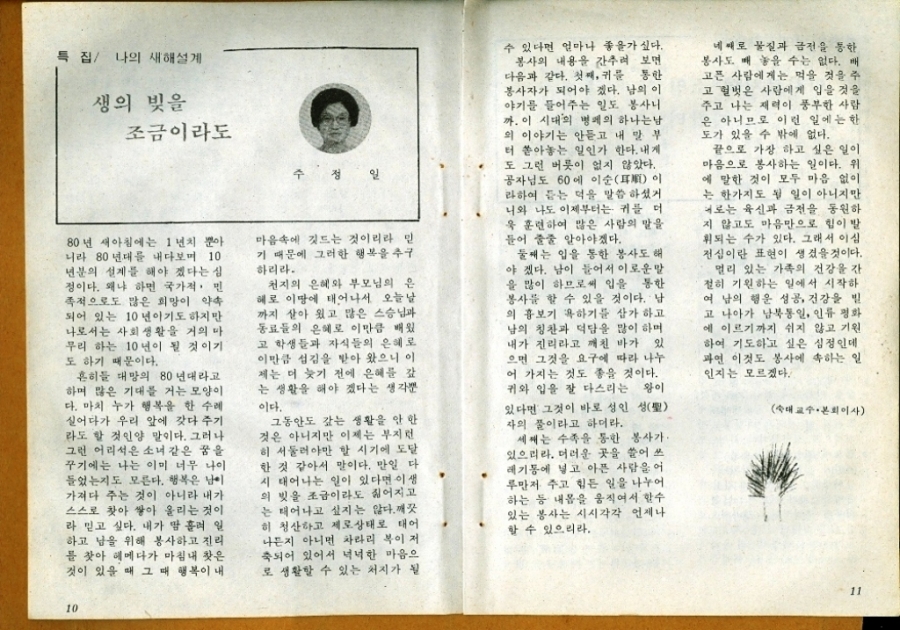 특 집/ 나의 새해설계
생의 빚을
조금이라도
주 정 일
80년 새아침에는 1년치 뿐아
니라 80년대를 내다보며 10
년분의 설계를 해야 겠다는 심
정이다. 왜냐 하면 국가적, 민
족적으로도 많은 희망이 약속
되어 있는 10년이기도하지만
나로서는 사회생활을 거의 마
무리 하는 10년이 될 것이기
도 하기 때문이다.
흔히들 대망의 80년대라고
하며 많은 기대를 거는 모양이
다. 마치 누가 행복을 한 수레
실어다가 우리 앞에 갖다 주기
라도 할 것인양 말이다. 그러나
그런 어리석은 소녀같은 꿈을
꾸기에는 나는 이미 너무 나이
들었는지도 모른다. 행복은 남이
가져다 주는 것이 아니라 내가
스스로 찾아 쌓아 올리는 것이
라 믿고 싶다. 내가 땀 흘려 일
하고 남을 위해 봉사하고 진리
를 찾아 헤메다가 마침내 찾은
것이 있을 때 그 때 행복이 내
마음속에 깃드는 것이리라 믿
기 때문에 그러한 행복을 추구
하리라.
천지의 은혜와 부모님의 은
혜로 이땅에 태어나서 오늘날
까지 살아 왔고 많은 스승님과
동료들의 은혜로 이만큼 배웠
고 학생들과 자식들의 은혜로
이만큼 섬김을 받아 왔으니 이
제는 더 늦기 전에 은혜를 갚
는 생활을 해야 겠다는 생각뿐
이다.
그동안도 갚는 생활을 안 한
것은 아니지만 이제는 부지런
히 서둘러야만 할 시기에 도달
한 것 같아서 말이다. 만일 다
시 태어나는 일이 있다면 이생
의 빚을 조금이라도 짊어지고
는 태어나고 싶지는 않다. 깨끗
히 청산하고 제로상태로 태어
나든지 아니면 차라리 복이 저
축되어 있어서 넉넉한 마음으
로 생활할 수 있는 처지가 될
10
수 있다면 얼마나 좋을가 싶다.
봉사의 내용을 간추려 보면
다음과 같다. 첫째, 귀를 통한
봉사자가 되어야 겠다. 남의 이
야기를 들어주는 일도 봉사니
까. 이 시대의 병폐의 하나는 남
의 이야기는 안듣고 내 말 부
터 쏟아놓는 일인가 한다. 내게
도 그런 버릇이 없지 않았다.
공자님도 60에 이순(耳順)이
라하여 듣는 덕을 말씀 하셨거
니와 나도 이제부터는 귀를 더
욱 훈련하여 많은 사람의 말을
들어 줄줄 알아야겠다.
둘째는 입을 통한 봉사도 해
야 겠다. 남이 들어서 이로운 말
을 많이 하므로써 입을 통한
봉사를 할 수 있을 것이다. 남
의 흉보기 욕하기를 삼가 하고
남의 칭찬과 덕담을 많이 하며
내가 진리라고 깨친 바가 있
으면 그것을 요구에 따라 나누
어 가지는 것도 좋을 것이다.
귀와 입을 잘 다스리는 왕이
있다면 그것이 바로 성인 성(聖)
사의 풀이라고 하더라.
세째는 수족을 통한 봉사가
있으리라. 더러운 곳을 쓸어 쓰
레기통에 넣고 아픈 사람을 어
루만져 주고 힘든 일을 나누어
하는 등 내몸을 움직여서 할수
있는 봉사는 시시각각 언제나
할 수 있으리라.
네째로 물질과 금전을 통한
봉사도 빼 놓을 수는 없다. 배
고픈 사람에게는 먹을 것을 주
고 헐벗은 사람에게 입을 것을
주고 나는 재력이 풍부한 사람
은 아니므로 이런 일에는 한
도가 있을 수 밖에 없다.
끝으로 가장 하고 싶은 일이
마음으로 봉사하는 일이다. 위
에 말한 것이 모두 마음 없이
는 한가지도 될 일이 아니지만
때로는 육신과 금전을 동원하
지 않고도 마음만으로 힘이 발
휘되는 수가 있다. 그래서 이심
전심이란 표현이 생겼을것이다.
멀리 있는 가족의 건강을 간
절히 기원하는 일에서 시작하
여 남의 행운 성공, 건강을 빌
고 나아가 남북통일, 인류 평화
에 이르기까지 쉬지 않고 기원
하여 기도하고 싶은 심정인데
과연 이것도 봉사에 속하는 일
인지는 모르겠다.
(숙대교수·본회이사)
11